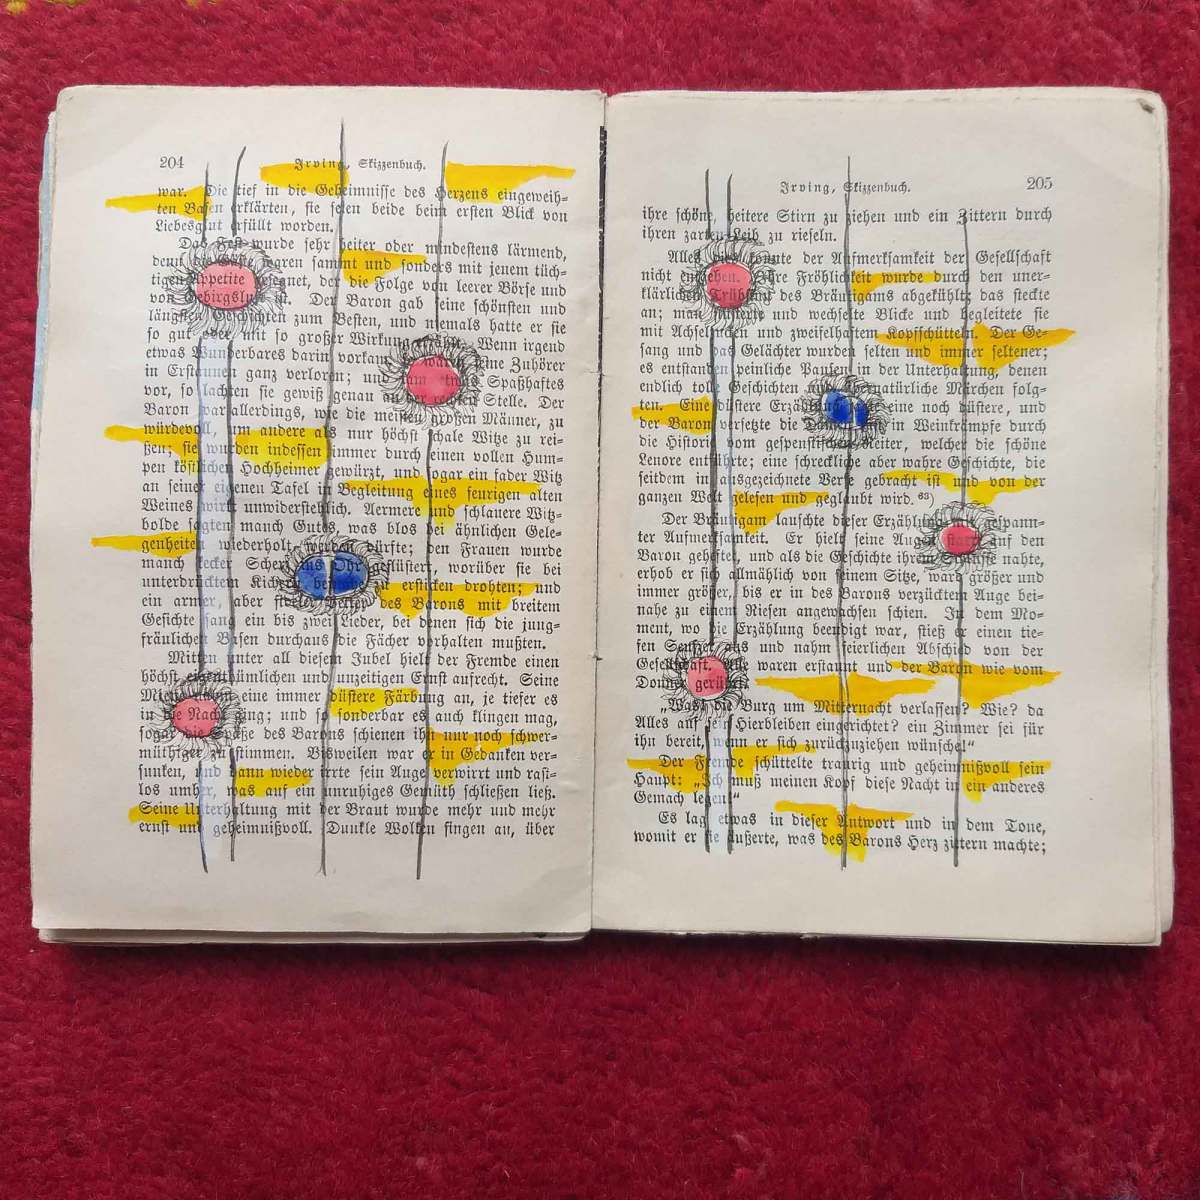 204
Irving, Skizzenbuch.
war. Die tief in die Geheimnisse des Herzens eingeweih-
ten Basen erklärten, sie seien beide beim ersten Blick von
Liebesglut erfüllt worden.
Das Fest wurde sehr heiter oder mindestens lärmend,
denn die Gäste waren sammt und sonders mit jenem tüch-
tigen Appetite gesegnet, der die Folge von leerer Börse und
von Gebirgsluft ist. Der Baron gab seine schönsten und
längsten Geschichten zum Besten, und niemals hatte er sie
so gut oder mit so großer Wirkung erzählt. Wenn irgend
etwas Wunderbares darin vorkam, so waren seine Zuhörer
in Erstaunen ganz verloren; und kam etwas Spaßhaftes
vor, so lachten sie gewiß genau an der rechten Stelle. Der
Baron war allerdings, wie die meisten großen Männer, zu
würdevoll, um andere als nur höchst schale Witze zu rei-
ßen; sie wurden indessen immer durch einen vollen Hum-
pen köstlichen Hochheimer gewürzt, und sogar ein fader Witz
an seiner eigenen Tafel in Begleitung eines feurigen alten
Weines wirkt unwiderstehlich. Aermere und schlauere Witz-
bolde sagten manch Gutes, was blos bei ähnlichen Gele-
genheiten wiederholt werden dürfte; den Frauen wurde
manch kecker Scherz ins Ohr geflüstert, worüber sie bei
unterdrücktem Kichern beinahe zu ersticken drohten; und
ein armer, aber Vetter des Barons mit breitem
Gesichte sang ein bis zwei Lieder, bei denen sich die jung-
fräulichen Basen durchaus die Fächer vorhalten mußten.
Mitten unter all diesem Jubel hielt der Fremde einen
höchst eigenthümlichen und unzeitigen Ernst aufrecht. Seine
Miene nahm eine immer düstere Färbung an, je tiefer es
in die Nacht ging; und so sonderbar es auch klingen mag,
sogar die Späße des Barons schienen ihn nur noch schwer-
müthiger zu stimmen. Bisweilen war er in Gedanken ver-
sunken, und dann wieder irrte sein Auge verwirrt und rast-
los umher, was auf ein unruhiges Gemüth schließen ließ.
Seine Unterhaltung mit der Braut wurde mehr und mehr
ernst und geheimnißvoll. Dunkle Wolken fingen an, über
Irving, Skizzenbuch.
205
ihre schöne, heitere Stirn zu ziehen und ein Zittern durch
ihren zarten Leib zu rieseln.
Alles dies konnte der Aufmerksamkeit der Gesellschaft
nicht entgehen. Ihre Fröhlichkeit wurde durch den uner-
klärlichen Trübsinn des Bräutigams abgekühlt; das steckte
an; man flüsterte und wechselte Blicke und begleitete sie
mit Achselzucken und zweifelhaftem Kopfschütteln. Der Ge-
sang und das Gelächter wurden selten und immer seltener;
es entstanden peinliche Pausen in der Unterhaltung, denen
endlich tolle Geschichten und übernatürliche Märchen folg-
ten. Eine düstere Erzählung rief eine noch düstere, und
der Baron versetzte die Damen fast in Weinkrämpfe durch
die Historie vom gespenstischen Reiter, welcher die schöne
Lenore entführte; eine schreckliche aber wahre Geschichte, die
seitdem in ausgezeichnete Verse gebracht ist und von der
ganzen Welt gelesen und geglaubt wird. 63)
Der Bräutigam lauschte dieser Erzählung mit gespann-
ter Aufmerksamkeit. Er hielt seine Augen starr auf den
Baron geheftet, und als die Geschichte ihrem Schlusse nahte,
erhob er sich allmählich von seinem Sitze, ward größer und
immer größer, bis er in des Barons verzücktem Auge bei-
nahe zu einem Riesen angewachsen schien. In dem Mo-
ment, wo die Erzählung beendigt war, stieß er einen tie-
fen Seufzer aus und nahm feierlichen Abschied von der
Gesellschaft. Alle waren erstaunt und der Baron wie vom
Donner gerührt.
„Was! die Burg um Mitternacht verlassen? Wie? da
Alles auf sein Hierbleiben eingerichtet? ein Zimmer sei für
ihn bereit, wenn er sich zurückzuziehen wünsche!“
Der Fremde schüttelte traurig und geheimnißvoll sein
Haupt: „Ich muß meinen Kopf diese Nacht in ein anderes
Gemach legen!“
Es lag etwas in dieser Antwort und in dem Tone,
womit er sie äußerte, was des Barons Herz zittern machte;